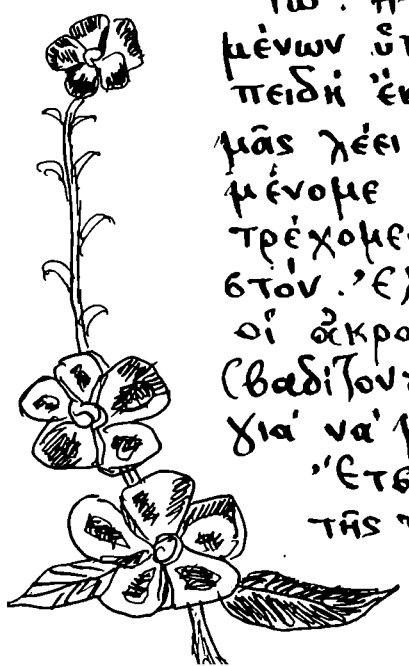 μένων
πειδή
μᾶς λέει
μένομε
τρέχομε
στόν. Ἐ
οἱ ἀκρο
(βαδίζοντ
γιά νά
Ἔτσ
τῆς τ